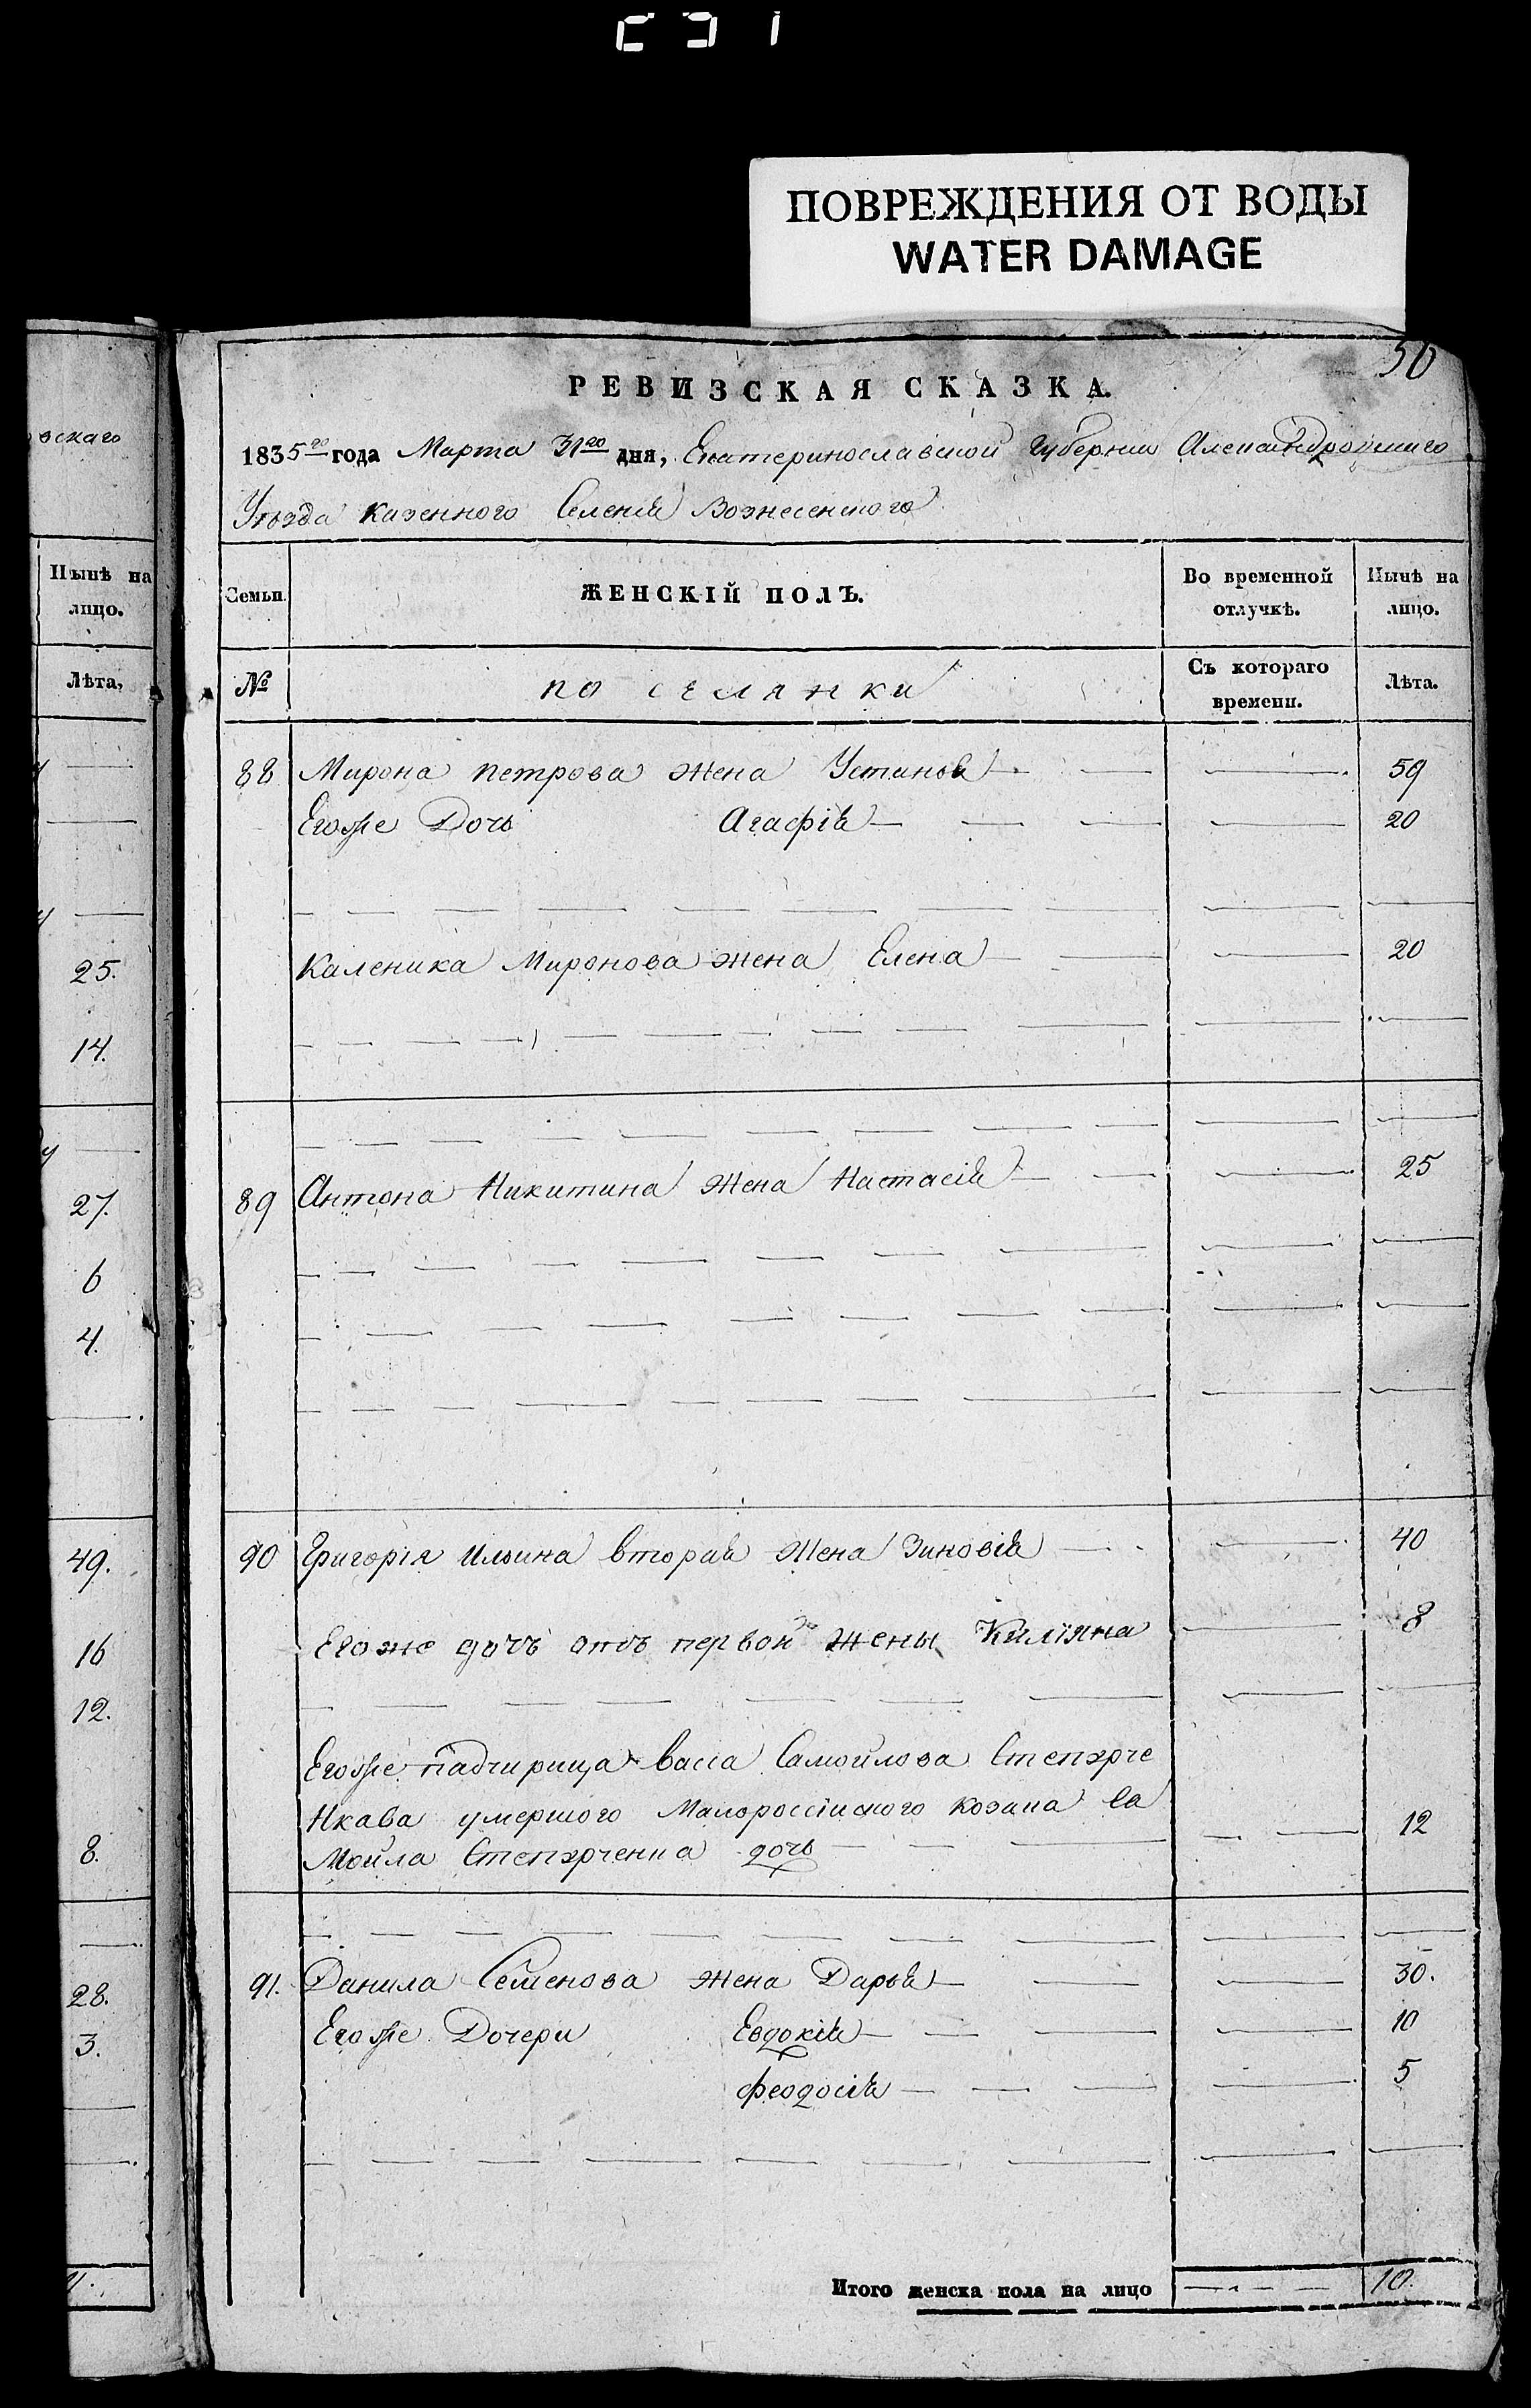 ПОВРЕЖДЕНИЯ ОТ ВОДЫ
WATER DAMAGE
50
вскаго
Нынѣ на
лицо.
Лѣта,
25.
14.
27.
6
4.
49.
16
12.
8.
28.
3.
РЕВИЗСКАЯ СКАЗКА.
1835го года Марта 31го дня, Екатеринославской Губернии Александровского
Уѣзда казенного Селенія Вознесенского
Семьи. ЖЕНСКІЙ ПОЛЪ. Во временной отлучкѣ. Нынѣ на лицо.
№ поселянки Съ котораго времени. Лѣта.
88 Мирона петрова жена Устинья 59
Егоже Дочь Агафія 20
Каленика Миронова жена Елена 20
89 Антона Никитина жена Настасія 25
90 Григорія Ильина вторая жена Зиновія 40
Егоже дочъ отъ первой жены 8
Егоже падчирица васса Самойлова Степэрче
Нкава умершого Малороссійского козака Са
Мойла Степэрченка дочь 12
91. Данила Семенова жена Дарья 30.
Егоже Дочери Евдокія 10
феодосія 5
Итого женска пола на лицо 10.